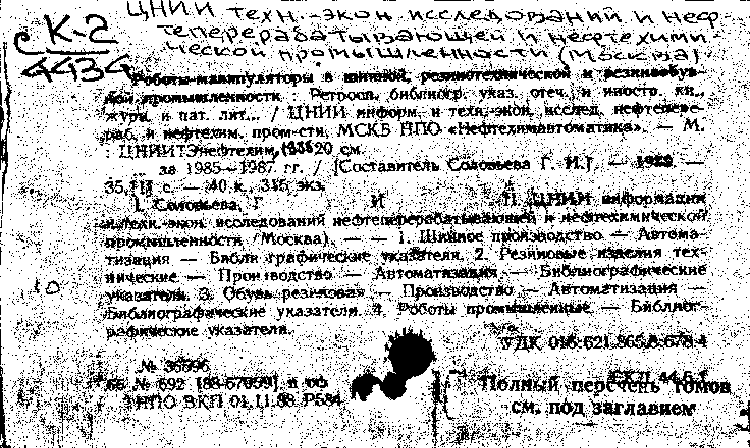 ЦНИИ техн.-экон. исследований и неф-
теперерабатывающей и нефтехими-
ческой промышленности (Москва).
К-2
4434
Роботы-манипуляторы в шинной, резинотехнической и резинообув-
ной промышленности : Ретросп. библиогр. указ. отеч. и иностр. кн.,
журн. и пат. лит... / ЦНИИ информ. и техн.-экон. исслед. нефтепере-
раб. и нефтехим. пром-сти, МСКБ НПО «Нефтехимавтоматика». — М.
: ЦНИИТЭнефтехим, 20 см.
за 1985—1987 гг. / [Составитель Соловьева Г. И.]. — 1988 —
35, III с. — 40 к., 315 экз.
1. Соловьева, Г И II. ЦНИИ информации
и техн.-экон. исследований нефтеперерабатывающей и нефтехимической
промышленности (Москва). — — 1. Шинное производство — Автома-
тизация — Библиографические указатели. 2. Резиновые изделия тех-
нические — Производство — Автоматизация — Библиографические
указатели. 3. Обувь резиновая — Производство — Автоматизация —
Библиографические указатели. 4. Роботы промышленные — Библиог-
рафические указатели.
10
УДК
№ 36996
№ 692 [88-67099] п оф
НПО ВКП 04.11.88 Р584
Полный перечень томов
см. под заглавием